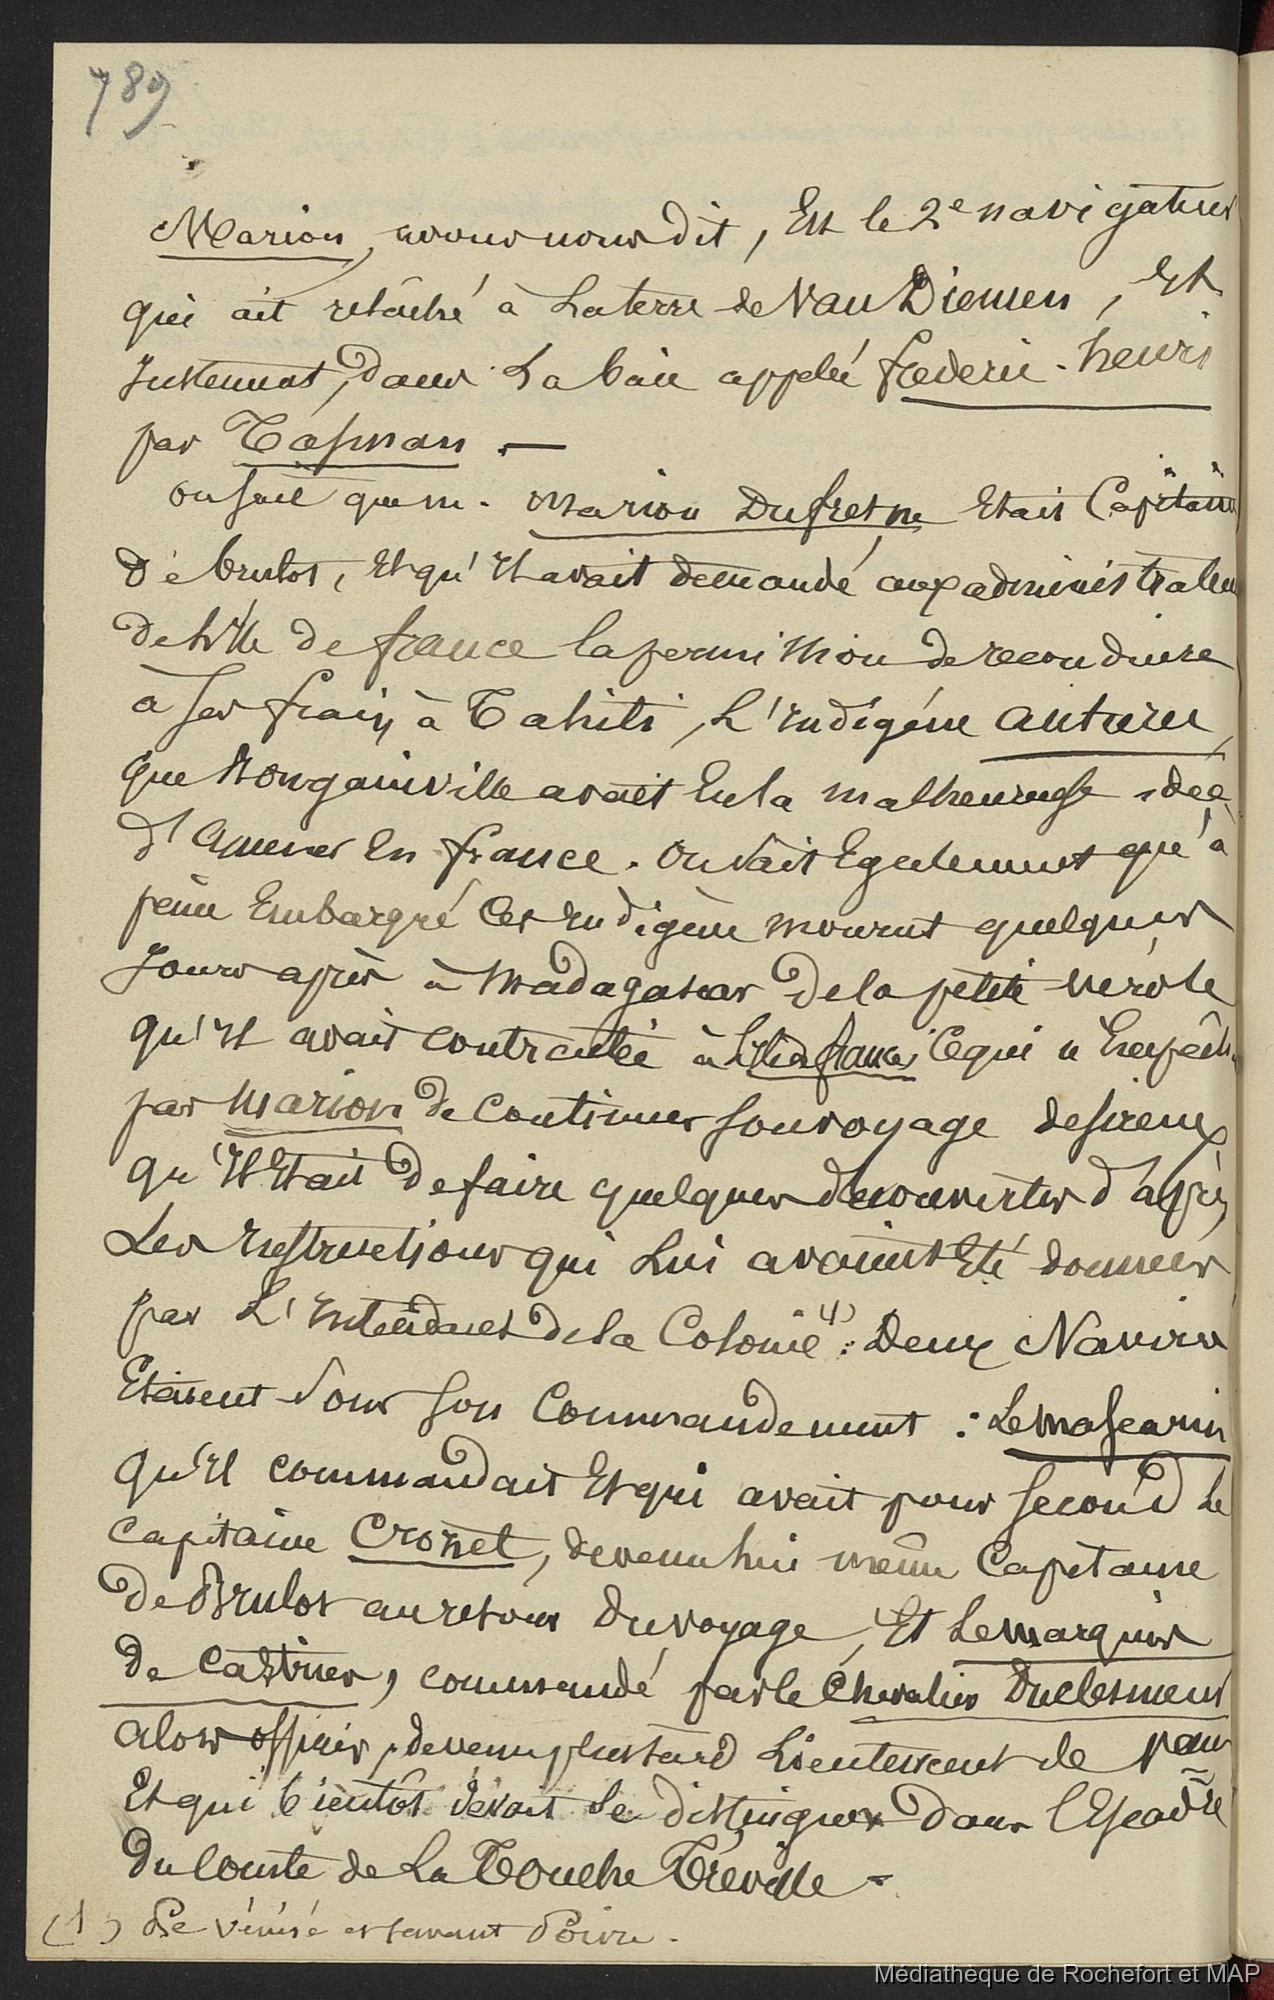 789
Marion, avons nous dit, Est le 2e navigateur
qui ait relâché à La terre de Van Diemen, Et
Justement, dans La baie appelée frederic-henri
par Tasman. —
on sait que m. Marion Dufresne Etait Capitaine
de brulot, Et qu'Il avait demandé aux administrateurs
de L'Ile de france la permission de reconduire
à ses frais, à Tahiti, L'Indigéne autourou,
que Bougainville avait Eu la malheureuse idée
d'amener En france. On sait Egalement qu'à
peine Embarqué Cet Indigène mourut quelques
Jours après à Madagascar de la petite vérole
qu'Il avait contractée à L'Ile de france, Ce qui n'Empêcha
pas Marion de Continuer son voyage desireux
qu'Il Etait de faire quelques découvertes d'après
Les Instructions qui Lui avaient Eté données
par L'Intendant de la Colonie (1): Deux Navires
Etaient sous son Commandement : Le Mascarin
qu'Il commandait Et qui avait pour second Le
Capitaine Crozet, devenu lui même Capitaine
de Brulot au retour du voyage, Et Le Marquis
de Castries, commandé par le Chevalier Duclesmeur
alors officier, devenu plus tard Lieutenant de Vau
Et qui bientôt devait se distinguer dans l'Escadre
du Comte de La Touche Tréville –
(1) Le vénéré et savant Poivre.
Médiathèque de Rochefort et MAP